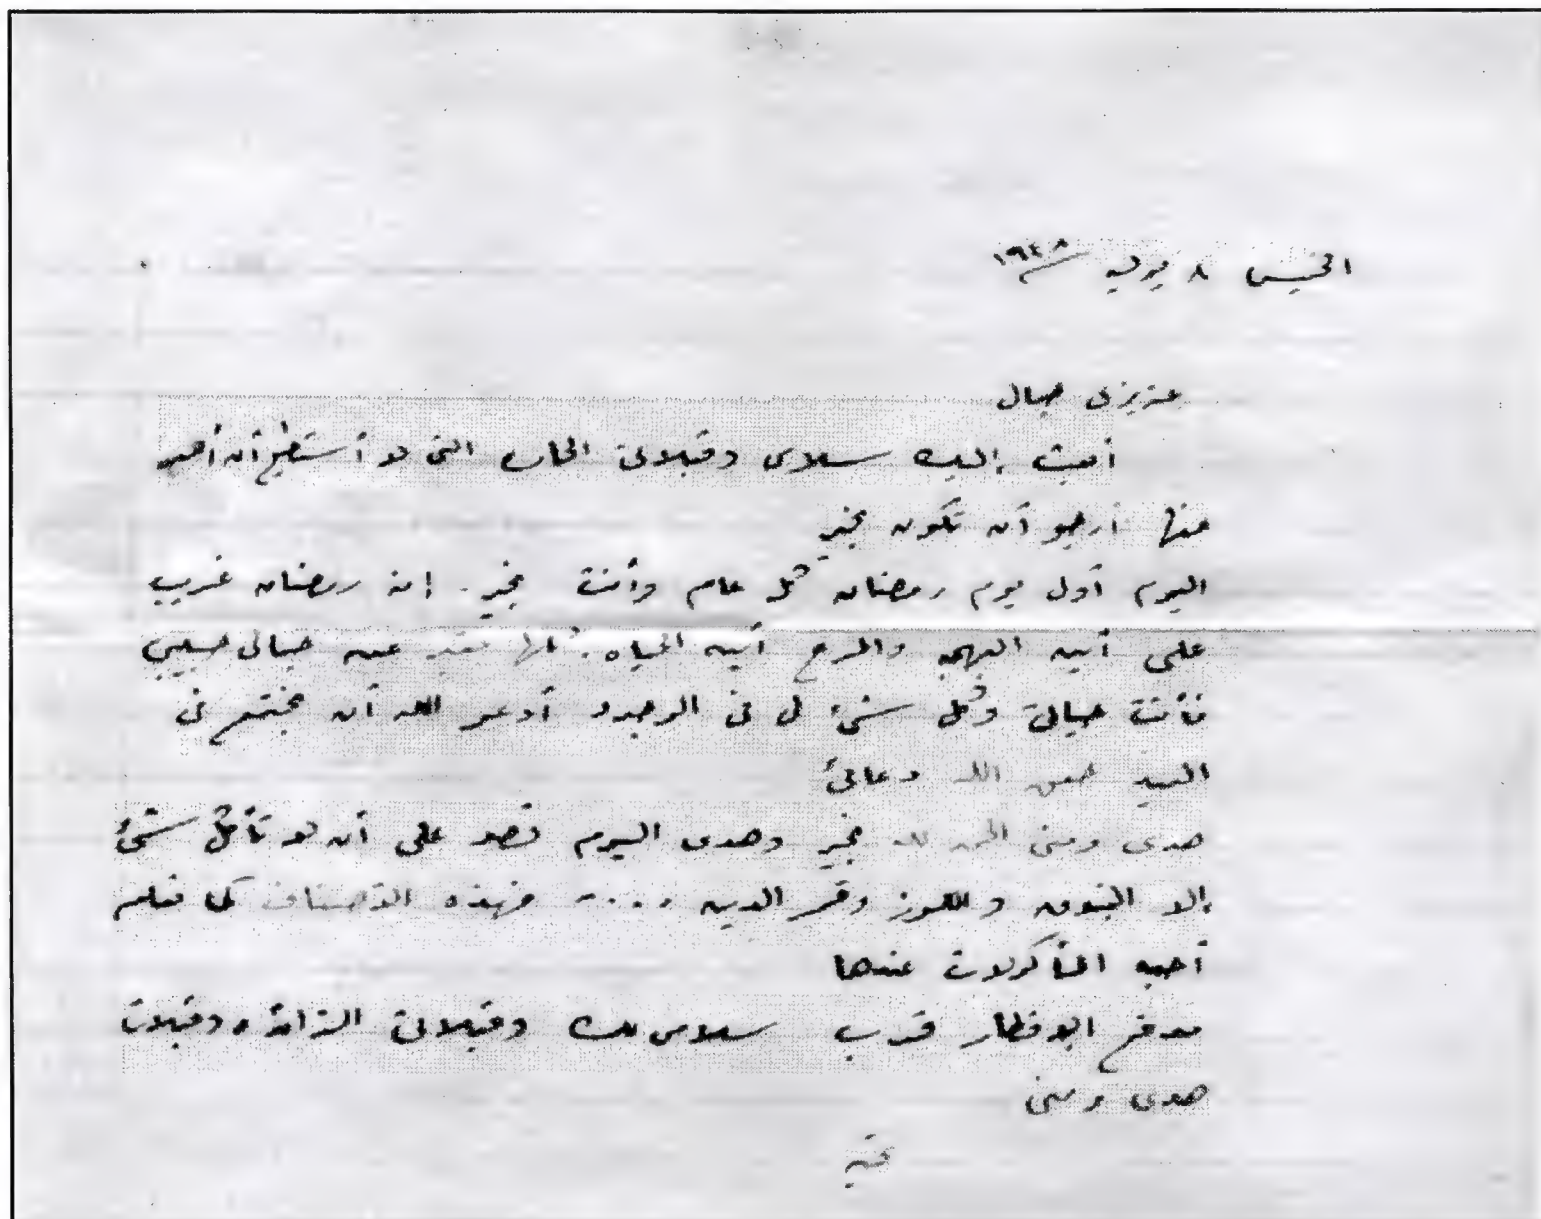 الخميس ٨ يوليه ١٩٤٨
عزيزى جمال
أبعث إليك سلامى وقبلاتى الحارة التى لا أستطيع أن أعبر
عنها أرجو أن تكون بخير
اليوم أول يوم رمضان كل عام وأنت بخير. إن رمضان غريب
على أين البهجة والمرح أين الحياة. كلها عن جمالى حبيبى
فأنت حياتى وكل شئ لى فى الوجود أدعو الله أن نجتمع فى
العيد حقق الله دعائى
هدى ومنى الحمد لله بخير وهدى اليوم تصر على أن لا تأكل شئ
إلا البندق واللوز وقمر الدين .... فهذه الأصناف كما تعلم
أحب المأكولات عندها
مدفع الإفطار قرب سلامى لك وقبلاتى الزائدة وقبلات
هدى ومنى
تحية